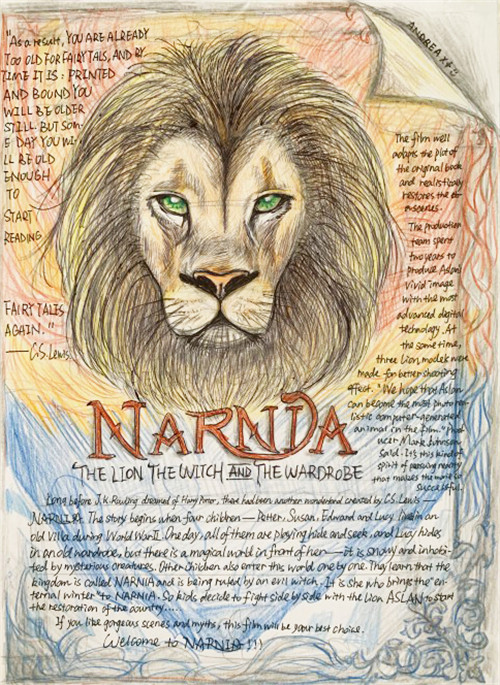 "As a result, YOU ARE ALREADY
TOO OLD FOR FAIRY TALS, AND BY
TIME IT IS: PRINTED
AND BOUND YOU
WILL BE OLDER
STILL. BUT SOM-
E DAY YOU WI-
LL BE OLD
ENOUGH
TO
START
READING
FAIRY TALES
AGAIN."
——C.S. Lewis.
ANDREA
The film well
adapts the plot of
the original book
and realistically
restores the
scenes.
The production
team spent
two years to
produce Aslan's
vivid image
with the most
advanced digital
technology. At
the same time,
three lion models were
made for better shooting
effect. "We hope that Aslan
can become the most photorea-
listic computer-generated
animal in the film." Prod
ucer Mark Johnson
said. It's this kind of
spirit of pursuing reality
that makes the movie so
successful.
NARNIA
THE LION THE WITCH AND THE WARDROBE
Long before J.K. Rowling dreamed of Harry Potter, there had been another wonderland created by C.S. Lewis——
NARNIA. The story begins when four children——Petter, Susan, Edward and Lucy, live in an
old villa during World War II. One day, all of them are playing hide and seek, and Lucy hides
in an old wardrobe, but there is a magical world in front of her——it is snowy and inhabi-
ted by mysterious creatures. Other children also enter this world one by one. They learn that the
kingdom is called NARNIA and is being ruled by an evil witch. It is she who brings the "en-
ternal winter" to NARNIA. So kids decide to fight side by side with the Lion ASLAN to start
the restoration of the country.....
If you like gorgeous scenes and myths, this film will be your best choice.
Welcome to NARNIA!!!